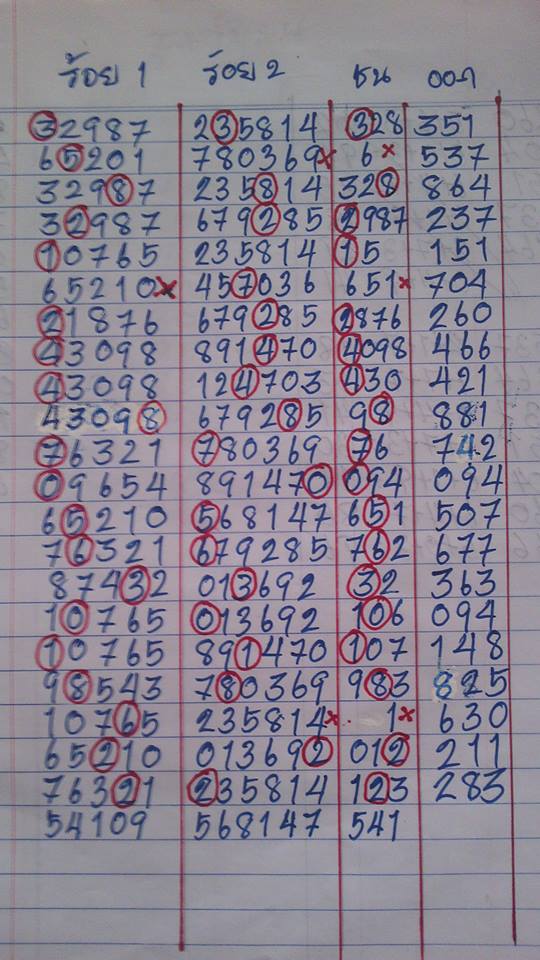 ร้อย 1 ร้อย 2 ชน ออก
32987 235814 328 351
65201 780369x 6x 537
32987 235814 328 864
32987 679285 2987 237
10765 235814 15 151
65210x 457036 651x 704
21876 679285 2876 260
43098 891470 4098 466
43098 124703 430 421
43098 679285 98 881
76321 780369 76 742
09654 891470 094 094
65210 568147 651 507
76321 679285 762 677
87432 013692 32 363
10765 013692 106 094
10765 891470 107 148
98543 780369 983 825
10765 235814x 1x 630
65210 013692 012 211
76321 235814 123 283
54109 568147 541